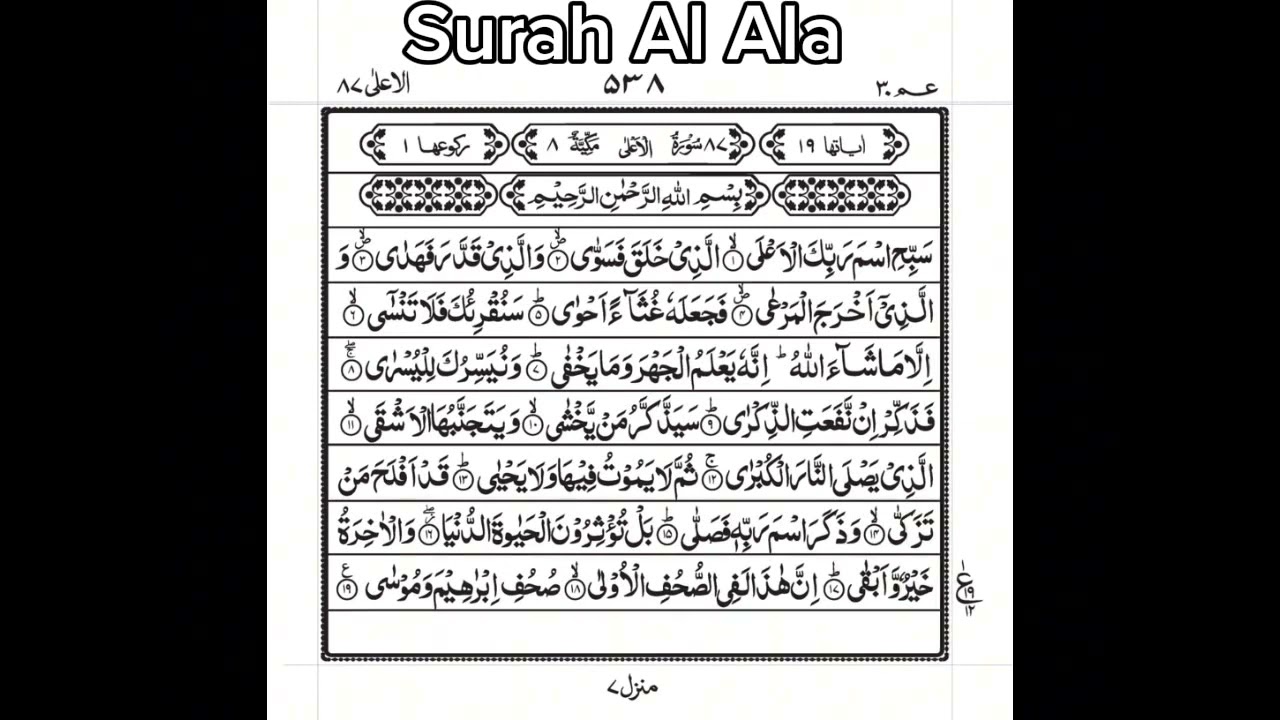 Surah Al Ala
عـم ۳۰ ۵۳۸ الاعلیٰ ۸۷
اٰیاتها ۱۹ ۸۷ سُوْرَةُ الْاَعْلٰى مَكِّيَّةٌ ۸ رکوعها ۱
بِسْمِ اللّٰهِ الرَّحْمٰنِ الرَّحِيْمِ
سَبِّحِ اسْمَ رَبِّكَ الْاَعْلَى ۙ﴿۱﴾ الَّذِىْ خَلَقَ فَسَوّٰى ۪ۙ﴿۲﴾ وَالَّذِىْ قَدَّرَ فَهَدٰى ۪ۙ﴿۳﴾ وَ
الَّذِىْۤ اَخْرَجَ الْمَرْعٰى ۪ۙ﴿۴﴾ فَجَعَلَهٗ غُثَآءً اَحْوٰى ؕ﴿۵﴾ سَنُقْرِئُكَ فَلَا تَنْسٰٓى ۙ﴿۶﴾
اِلَّا مَا شَآءَ اللّٰهُ ؕ اِنَّهٗ يَعْلَمُ الْجَهْرَ وَمَا يَخْفٰى ؕ﴿۷﴾ وَنُيَسِّرُكَ لِلْيُسْرٰى ۚۖ﴿۸﴾
فَذَكِّرْ اِنْ نَّفَعَتِ الذِّكْرٰى ؕ﴿۹﴾ سَيَذَّكَّرُ مَنْ يَّخْشٰى ۙ﴿۱۰﴾ وَيَتَجَنَّبُهَا الْاَشْقَى ۙ﴿۱۱﴾
الَّذِىْ يَصْلَى النَّارَ الْكُبْرٰى ۚ﴿۱۲﴾ ثُمَّ لَا يَمُوْتُ فِيْهَا وَلَا يَحْيٰى ؕ﴿۱۳﴾ قَدْ اَفْلَحَ مَنْ
تَزَكّٰى ۙ﴿۱۴﴾ وَذَكَرَ اسْمَ رَبِّهٖ فَصَلّٰى ؕ﴿۱۵﴾ بَلْ تُؤْثِرُوْنَ الْحَيٰوةَ الدُّنْيَا ۖ﴿۱۶﴾ وَالْاٰخِرَةُ
خَيْرٌ وَّاَبْقٰى ؕ﴿۱۷﴾ اِنَّ هٰذَا لَفِى الصُّحُفِ الْاُوْلٰى ۙ﴿۱۸﴾ صُحُفِ اِبْرٰهِيْمَ وَمُوْسٰى ﴿۱۹﴾ع
ع ۱۹ ۱۲
منزل ۷